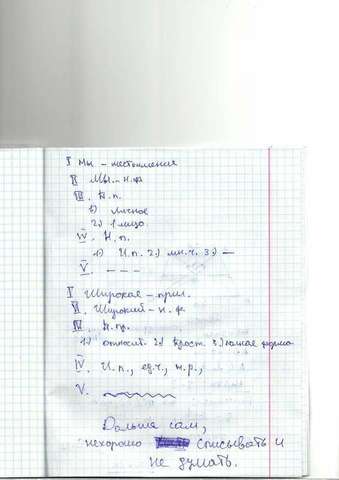 I Мы – местоимения
II Мы – н.ф.
III. Н.п.
1) личное
2) 1 лицо.
IV. Н.п.
1) И.п. 2) мн.ч. 3) —
V. – – –
I Широкая – прил.
II. Широкий – н.ф.
III. Н.пр.
1) относит. 2) прост. 3) полная форма
IV. И.п., ед.ч., м.р.,
V.
Дальше сам,
нехорошо списывать и
не думать.